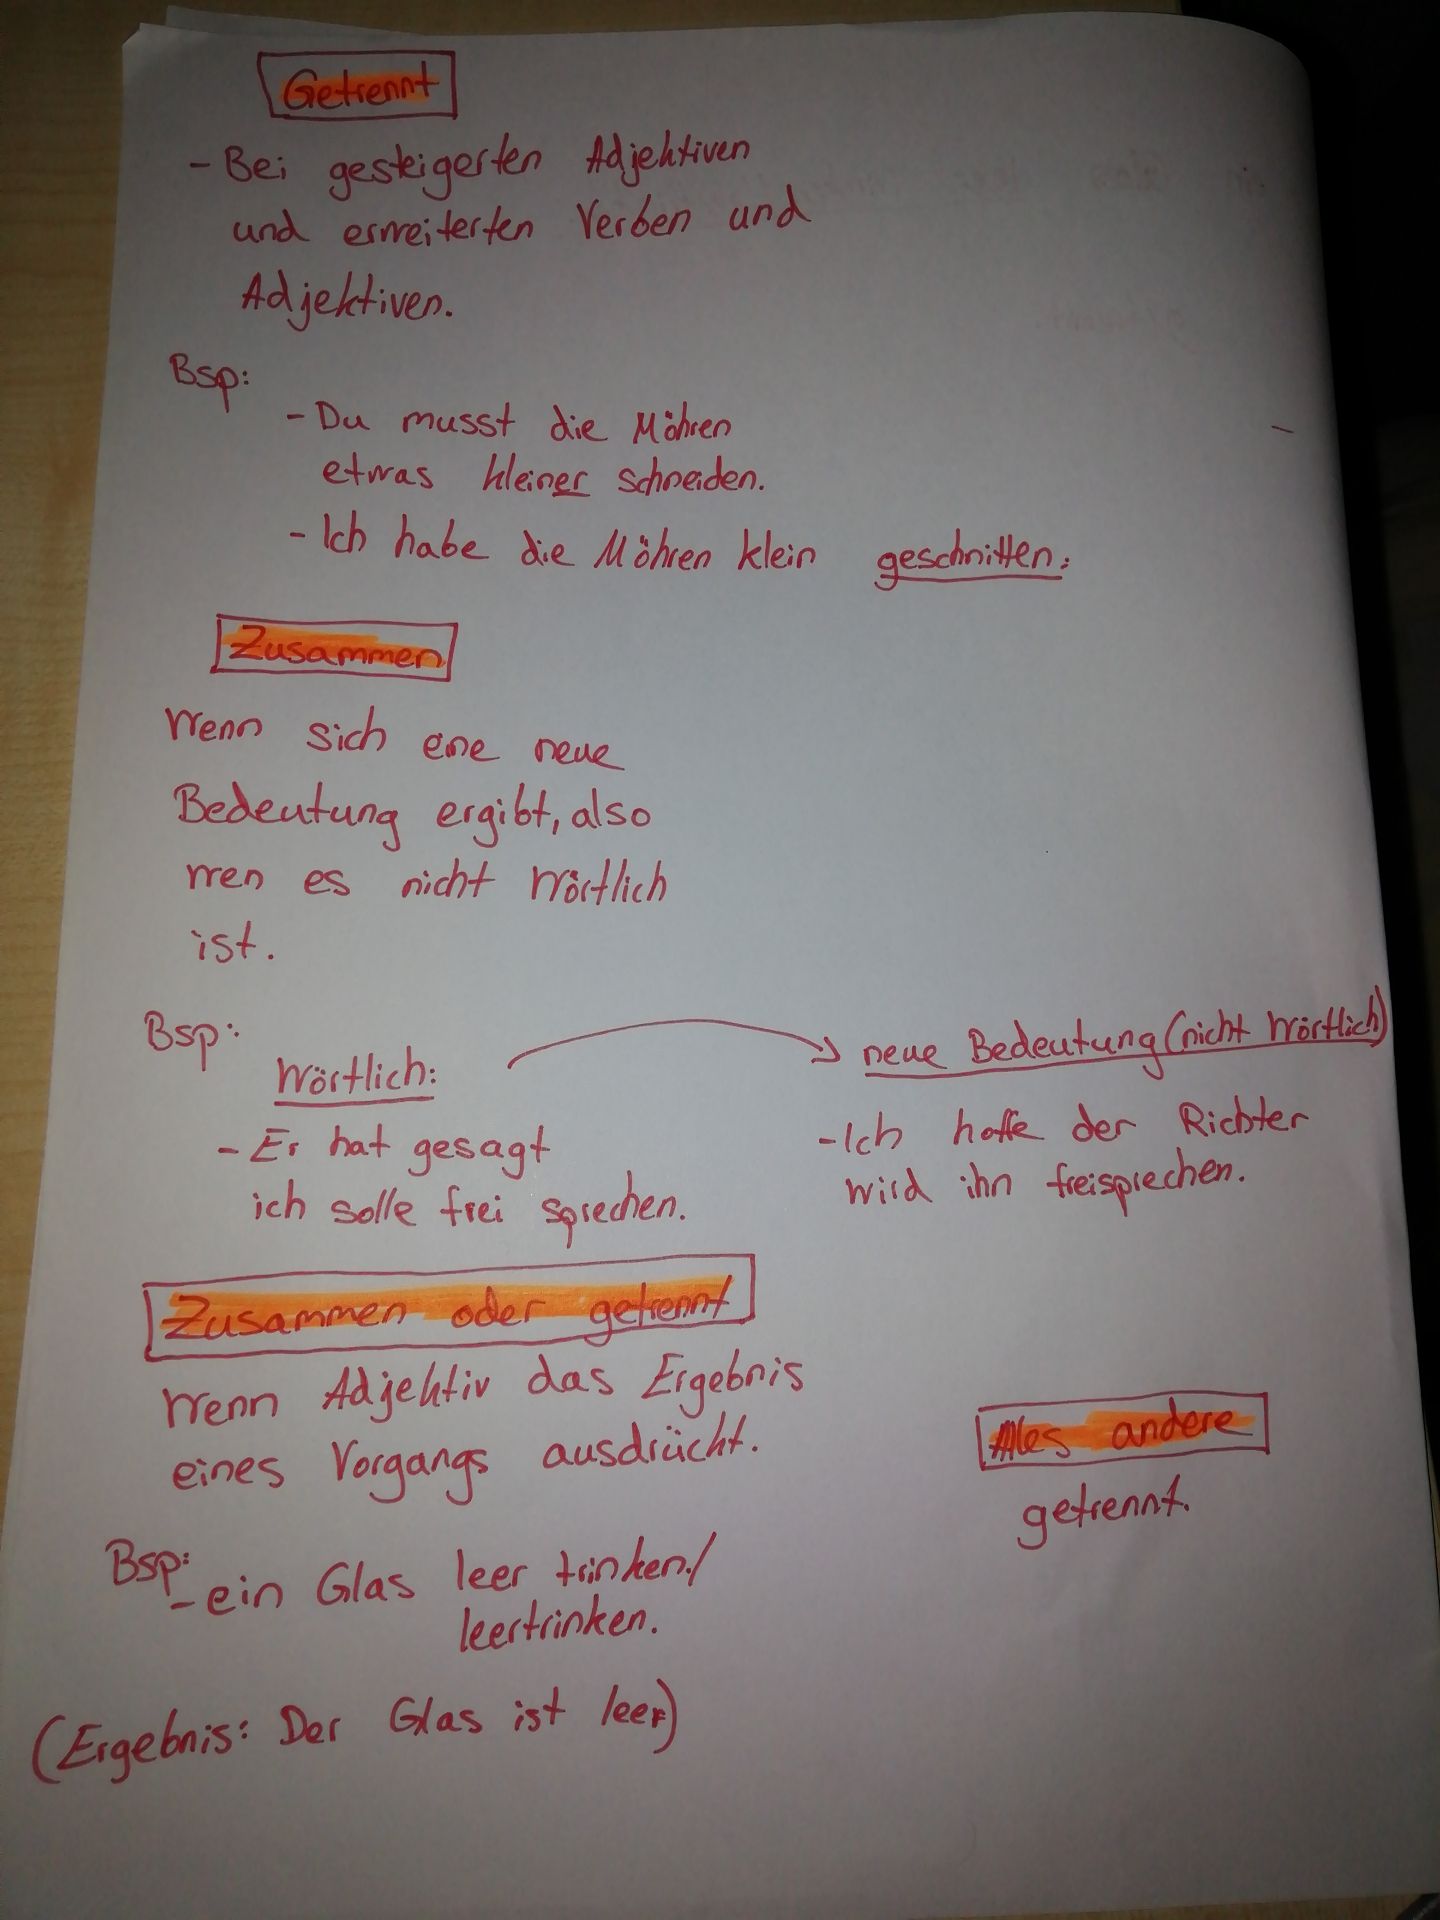 Getrennt
- Bei gesteigerten Adjektiven
und erweiterten Verben und
Adjektiven.
Bsp:
- Du musst die Möhren
etwas kleiner schneiden.
- Ich habe die Möhren klein geschnitten.
Zusammen
Wenn sich eine neue
Bedeutung ergibt, also
wen es nicht Wörtlich
ist.
Bsp:
Wörtlich:
- Er hat gesagt
ich solle frei sprechen.
neue Bedeutung (nicht Wörtlich)
- Ich hoffe der Richter
wird ihn freisprechen.
Zusammen oder getrennt
Wenn Adjektiv das Ergebnis
eines Vorgangs ausdrückt.
Bsp:
- ein Glas leer trinken./
leertrinken.
(Ergebnis: Der Glas ist leer)
Alles andere
getrennt.